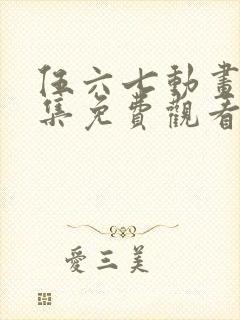 伍六七動畫
集免費觀看
愛三美